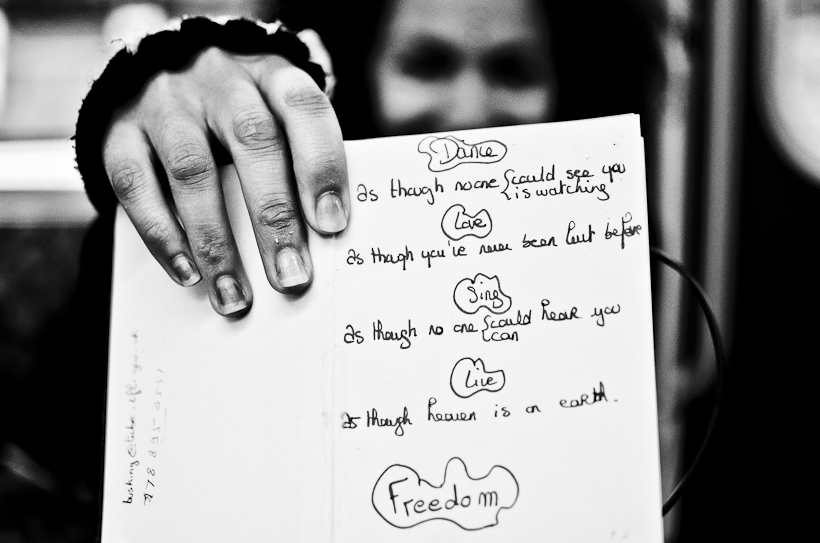 Dance
as though no one { could see you
{ is watching
Love
as though you've never been hurt before
Sing
as though no one { could hear you
{ can
Live
as though heaven is on earth.
Freedom
busking@